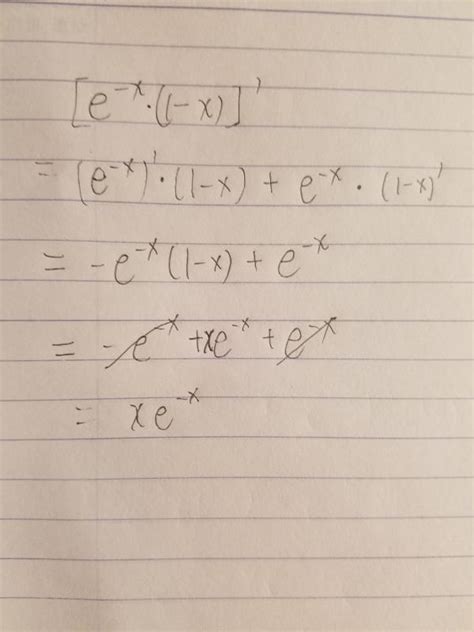 [e^{-x}·(1-x)]'
= (e^{-x})'·(1-x) + e^{-x}·(1-x)'
= -e^{-x}(1-x) + e^{-x}
= -e^{-x} + xe^{-x} + e^{-x}
= xe^{-x}